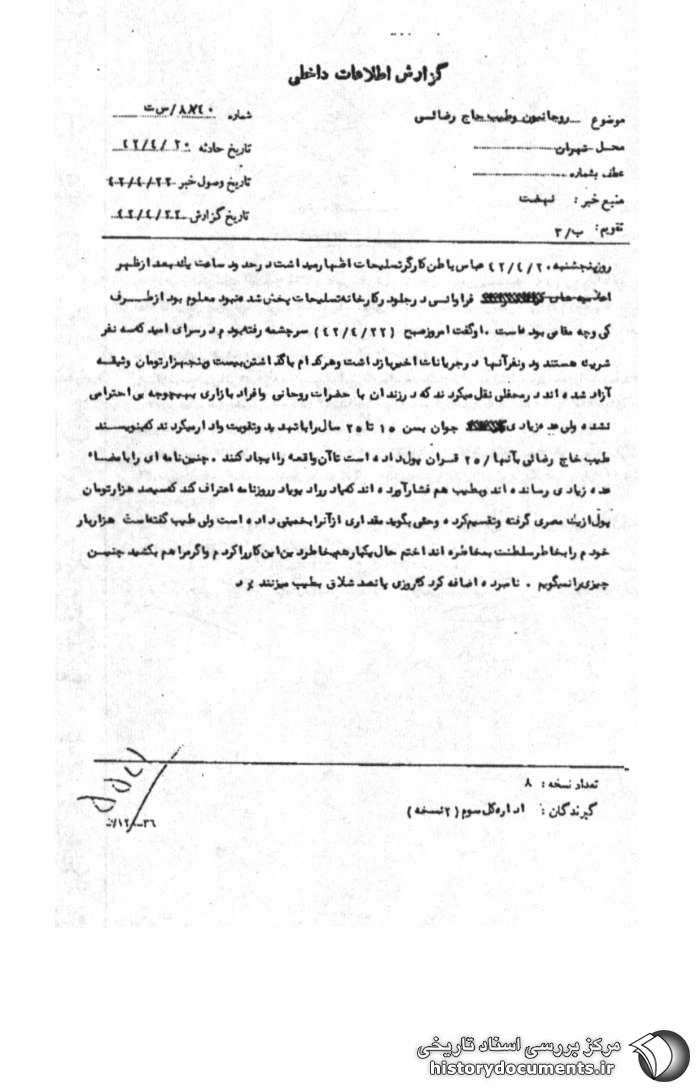 گزارش اطلاعات داخلی
موضوع روحانیون وطیب حاج رضائسی
شماره ۸۷۴۰/س ت
محل تهران
تاریخ حادثه ۴۲/۴/۲۰
عطف بشماره
تاریخ وصول خبر ۴۲/۴/۲۲
منبع خبر : نهضت
تاریخ گزارش ۴۲/۴/۲۲
تقویم: ب/۳
روزپنجشنبه ۴۲/۴/۲۰ عباس باطن کارگرتسلیحات اظهارمیداشت درحدود ساعت یك بعد ازظهر
اعلامیه های فراوانسی درجلود رکارخانه تسلیحات پخش شد ه نبود معلوم بود ازطرف
کی وچه مقامی بود ه است . اوگفت امروزصبح (۴۲/۴/۲۲) سرچشمه رفته بودم درسرای امید که سه نفر
شریك هستند ودونفرآنها درجریانات اخیربازداشت وهرکدام باگذاشتن بیست وپنجهزارتومان وثیقه
آزاد شد ه اند درمحفلی نقل میکردند که درزندان با حضرات روحانی وافراد بازاری بهیچوجه بی احترامی
نشده ولی عد ه زیادی جوان بسن ۱۵ تا ۲۵ سال رابا تهدید وتقویت وادارمیکردند که بنویسند
طیب حاج رضائی بآنها /۲۵ قران پول داد ه است تاآن واقعه راایجاد کنند . چنین نامه ای رابامضاء
عد ه زیادی رساند ه اند وبطیب هم فشارآورد ه اند که در رادیو یاد رروزنامه اعتراف کند که سیصد هزارتومان
پول ازیك مصری گرفته وتقسیم کرد ه وحتی بگوید مقداری ازآنرا بخمینی داد ه است ولی طیب گفته است هزاربار
خود م رابخاطرسلطنت بمخاطره انداختم حال یکبارهم بخاطردین این کارراکردم واگرمراهم بکشید چنین
چیزی رانمیگویم . نامبرد ه اضافه کرد که روزی پانصد شلاق بطیب میزنند
تعداد نسخه : ۸
گیرندگان : اداره کل سوم (۲نسخه)
مرکز بررسی اسناد تاریخی
historydocuments.ir